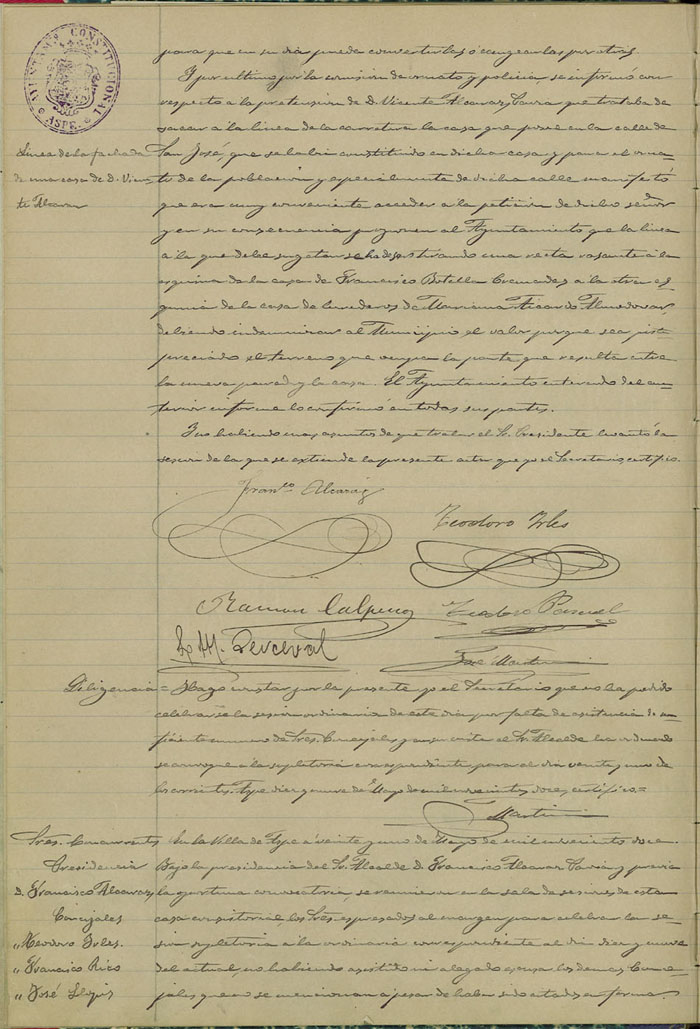 AYUNTAMº CONSTITUCIONAL
ASPE
para que en su dia pueda convertirlas ó cangearlas por otras.
Y por ultimo por la comision de ornato y policia se informó con
respecto a la pretension de D. Vicente Alcaraz Cavia que trataba de
sacar á la linea de la carretera la casa que posee en la calle de
Linea de la fachada
de una casa de D. Vicen-
te Alcaraz
San José, que se habia constituido en dicha casa y para el orna-
to de la poblacion y especialmente de dicha calle manifestó
que era muy conveniente acceder a la peticion de dicho señor
y en su consecuencia proponen al Ayuntamiento que la linea
á la que debe sugetarse ha de ser tirando una recta rasante á la
esquina de la casa de Francisco Botella Cremades á la otra es-
quina de la casa de herederos de Mariana Ricardo Almodovar,
debiendo indemnizar al Municipio el valor porque sea justi-
preciado el terreno que ocupa la parte que resulta entre
la nueva pared y la casa. El Ayuntamiento enterado del an-
terior informe lo confirmó en todas sus partes.
Y no habiendo mas asuntos de que tratar el Sr. Presidente levantó la
sesion de la que se extiende la presente acta que yo el Secretario, certifico.
Franco Alcaraz
Teodoro Irles
Ramon Calpena
Teodoro Pascual
M. Perceval
José Martin
Diligencia = Hago constar por la presente yo el Secretario que no ha podido
celebrarse la sesion ordinaria de este dia por falta de asistencia de su-
ficiente numero de Sres. Concejales y en su vista el Sr. Alcalde ha ordenado
se convoque a la supletoria correspondiente para el dia veinte y uno de
los corrientes. Aspe diez y nueve de Mayo de mil novecientos doce, certifico.=
Martin
Sres. Concurrentes
Presidencia
D. Francisco Alcaraz
Concejales
" Teodoro Irles
" Francisco Rico
" José Llopis
En la Villa de Aspe á veinte y uno de Mayo de mil novecientos doce.
Bajo la presidencia del Sr. Alcalde D. Francisco Alcaraz Cavia y previa
la oportuna convocatoria, se reunieron en la sala de sesiones de esta
casa consistorial, los Sres. expresados al margen para celebrar la se-
sion supletoria a la ordinaria correspondiente al dia diez y nueve
del actual, no habiendo asistido ni alegado excusa los demas Conce-
jales que no se mencionan á pesar de haber sido citados en forma.